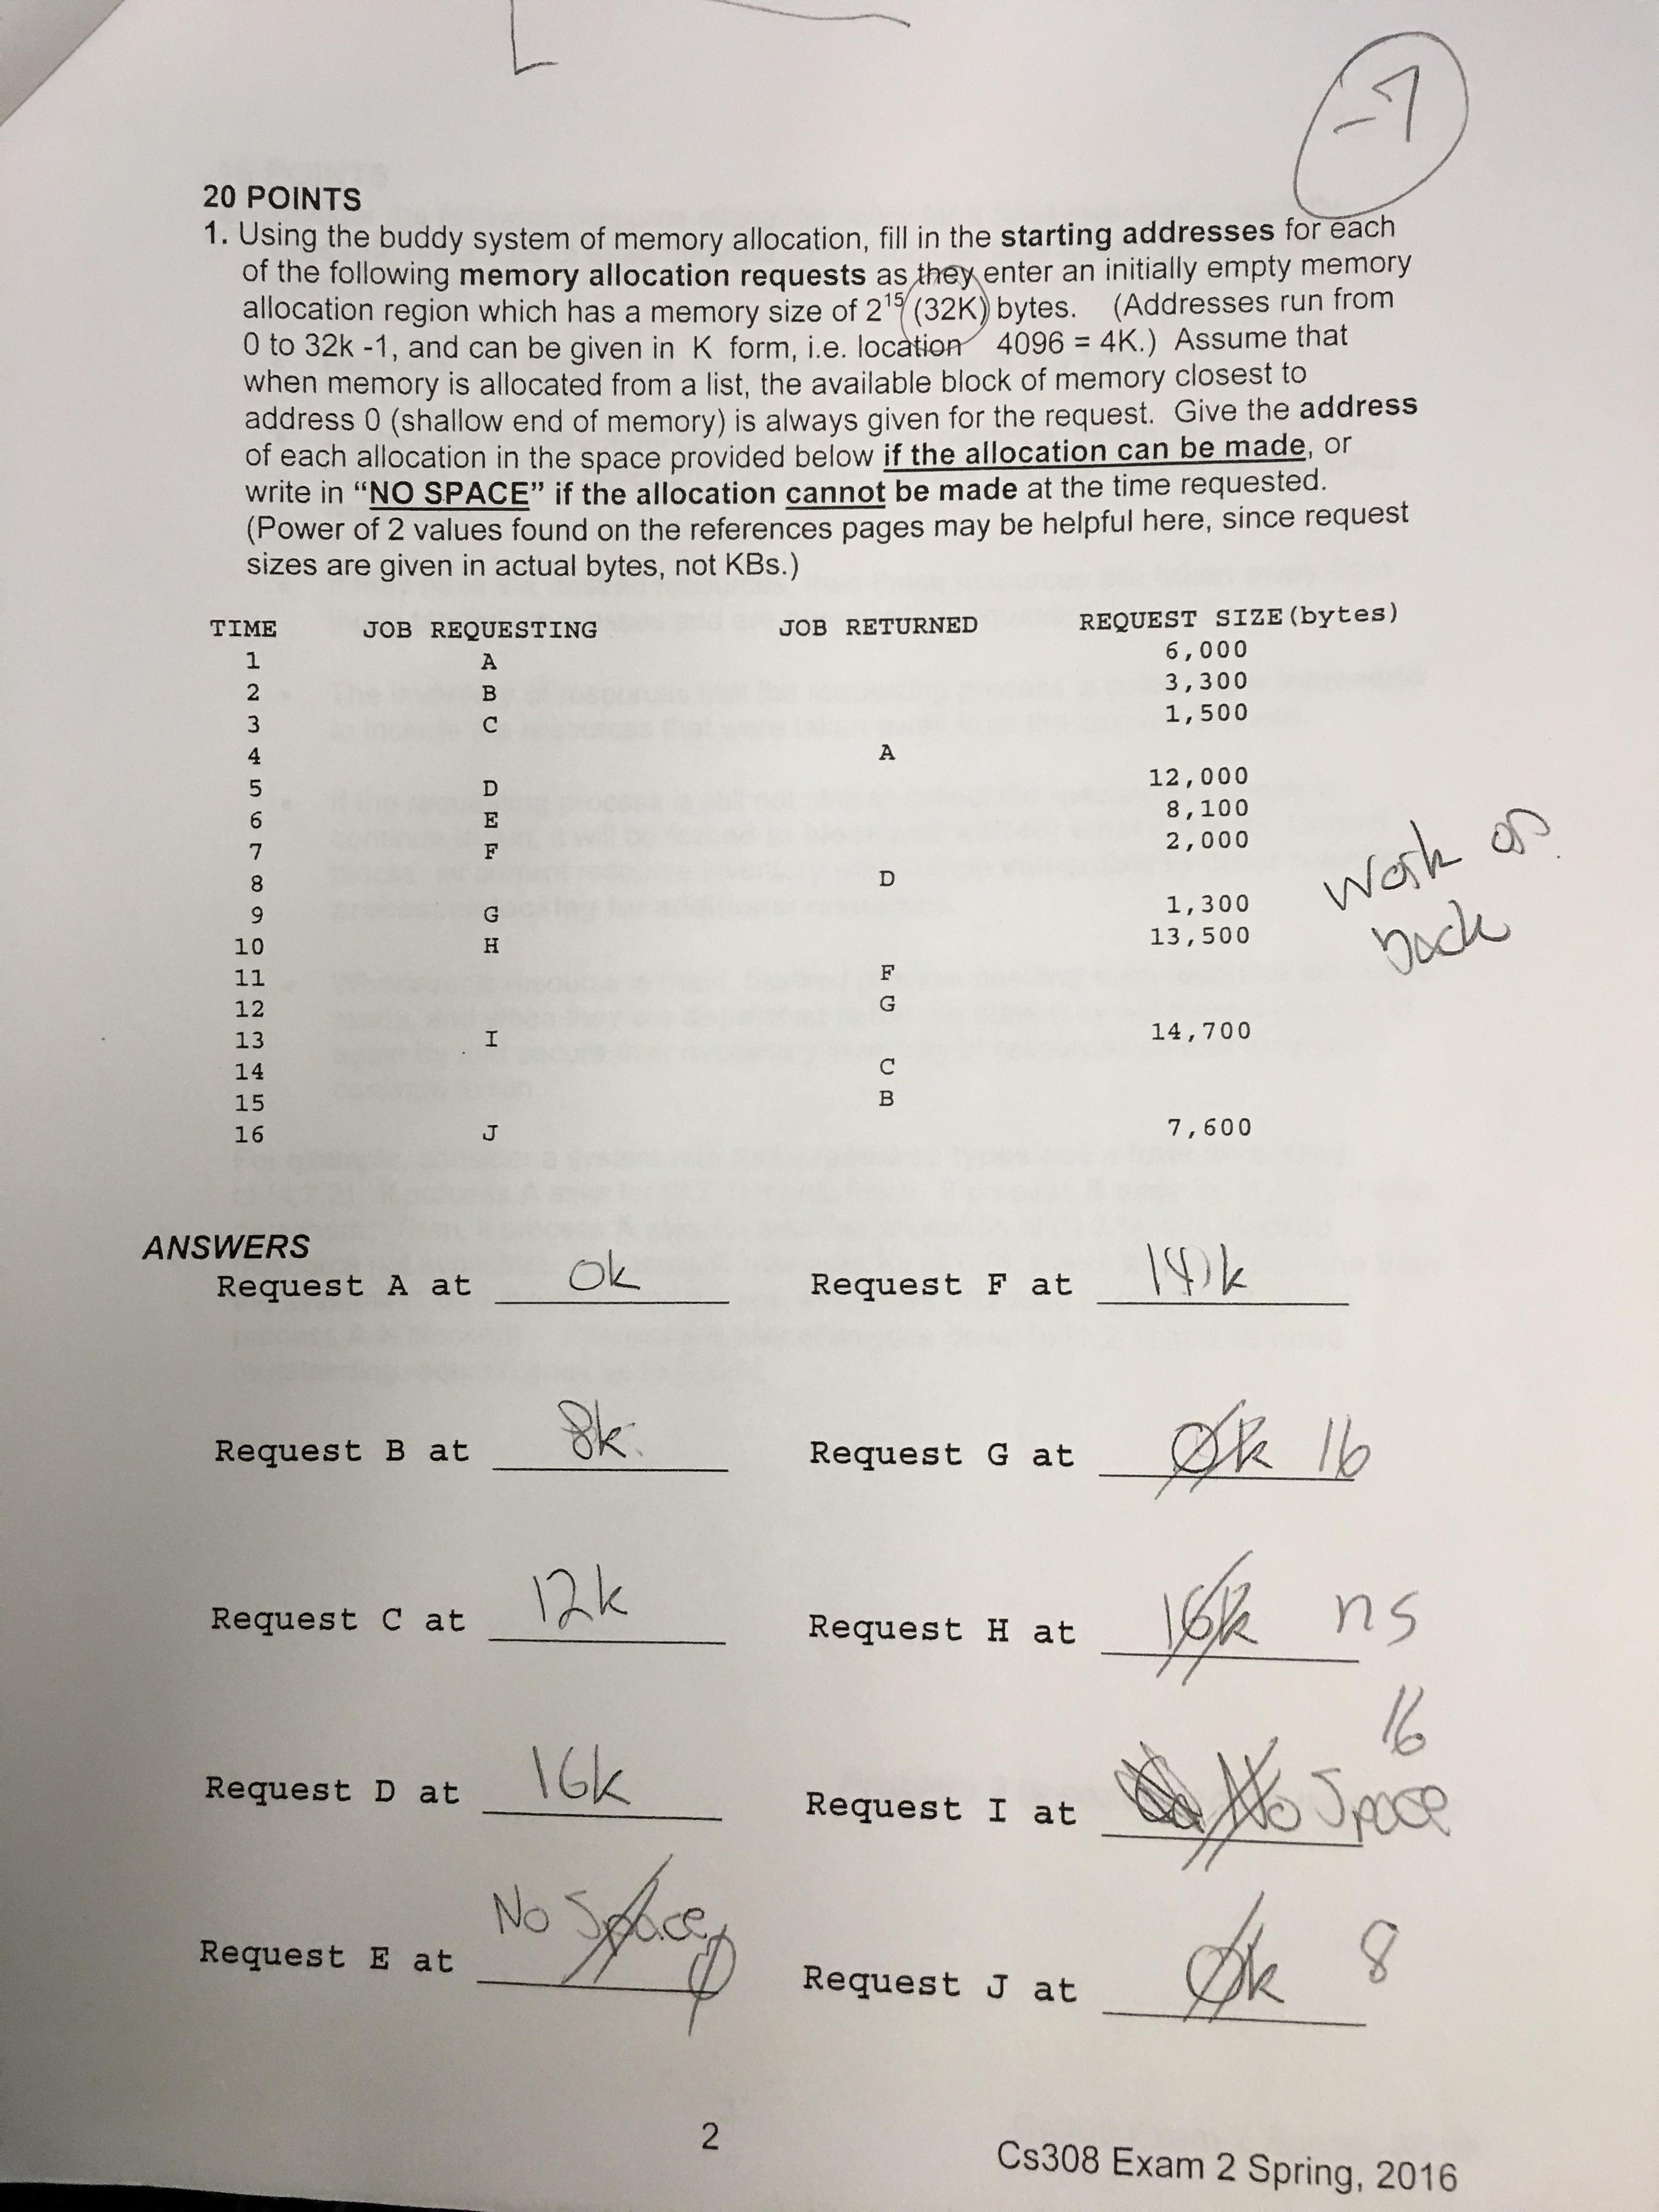 -7
20 POINTS
1. Using the buddy system of memory allocation, fill in the starting addresses for each
of the following memory allocation requests as they enter an initially empty memory
allocation region which has a memory size of 2¹⁵ (32K) bytes. (Addresses run from
0 to 32k -1, and can be given in K form, i.e. location 4096 = 4K.) Assume that
when memory is allocated from a list, the available block of memory closest to
address 0 (shallow end of memory) is always given for the request. Give the address
of each allocation in the space provided below if the allocation can be made, or
write in “NO SPACE” if the allocation cannot be made at the time requested.
(Power of 2 values found on the references pages may be helpful here, since request
sizes are given in actual bytes, not KBs.)
TIME JOB REQUESTING JOB RETURNED REQUEST SIZE(bytes)
1 A 6,000
2 B 3,300
3 C 1,500
4 A
5 D 12,000
6 E 8,100
7 F 2,000
8 D
9 G 1,300
10 H 13,500
11 F
12 G
13 I 14,700
14 C
15 B
16 J 7,600
Work on
back
ANSWERS
Request A at 0k Request F at 14k
Request B at 8k Request G at 0k 16
Request C at 12k Request H at 16k ns
Request D at 16k Request I at No Space 16
Request E at No Space 0 Request J at 0k 8
2
Cs308 Exam 2 Spring, 2016